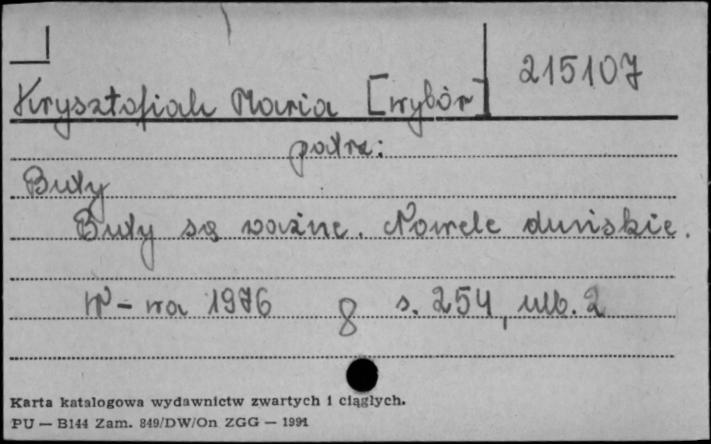 215107
Krysztofiak Maria [wybór]
patrz:
Buty
Buty są ważne. Nowele duńskie.
W-wa 1976 8 s. 254, nlb. 2
Karta katalogowa wydawnictw zwartych i ciągłych.
PU — B144 Zam. 849/DW/On ZGG — 1991